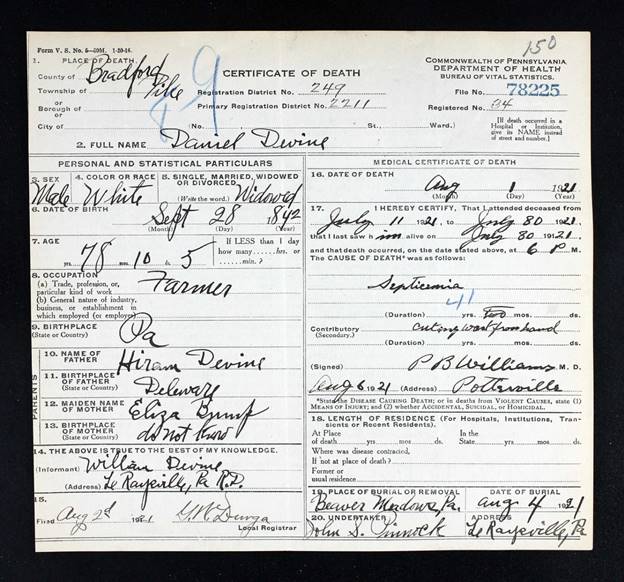 150
Form V. S. No. 5-50M. 1-20-16.
1. PLACE OF DEATH
County of Bradford
Township of Pike
or
Borough of
or
City of No. St., Ward.)
89
CERTIFICATE OF DEATH
Registration District No. 249
Primary Registration District No. 2211
COMMONWEALTH OF PENNSYLVANIA
DEPARTMENT OF HEALTH
BUREAU OF VITAL STATISTICS.
File No. 78225
Registered No. 34
[If death occurred in a
Hospital or Institution,
give its NAME instead
of street and number.]
2. FULL NAME Daniel Devine
PERSONAL AND STATISTICAL PARTICULARS
3. SEX
Male
4. COLOR OR RACE
White
5. SINGLE, MARRIED, WIDOWED
OR DIVORCED
(Write the word.) Widowed
6. DATE OF BIRTH
Sept 28 1842
(Month) (Day) (Year)
7. AGE
78 yrs. 10 mos. 5
If LESS than 1 day
how many hrs. or
min.?
8. OCCUPATION
(a) Trade, profession, or
particular kind of work
Farmer
(b) General nature of industry,
business, or establishment in
which employed (or employer)
9. BIRTHPLACE
(State or Country)
Pa
PARENTS
10. NAME OF
FATHER
Hiram Devine
11. BIRTHPLACE
OF FATHER
(State or Country)
Deleware
12. MAIDEN NAME
OF MOTHER
Eliza
13. BIRTHPLACE
OF MOTHER
(State or Country)
do not know
14. THE ABOVE IS TRUE TO THE BEST OF MY KNOWLEDGE.
(Informant) William Devine
(Address) Le Raysville, Pa R.D.
15.
Filed Aug 2d 1921
Local Registrar
MEDICAL CERTIFICATE OF DEATH
16. DATE OF DEATH
Aug 1 1921
(Month) (Day) (Year)
17. I HEREBY CERTIFY, That I attended deceased from
July 11 1921 to July 30 1921
that I last saw him alive on July 30 1921
and that death occurred, on the date stated above, at 6 P M.
The CAUSE OF DEATH* was as follows:
Septicemia
41
(Duration) yrs. mos. ds.
Contributory cuting wart from hand
(Secondary.)
(Duration) yrs. mos. ds.
(Signed) P B Williams M. D.
Aug 6 1921 (Address) Potterville
*State the DISEASE CAUSING DEATH; or in deaths from VIOLENT CAUSES, state (1)
MEANS OF INJURY; and (2) whether ACCIDENTAL, SUICIDAL, or HOMICIDAL.
18. LENGTH OF RESIDENCE (For Hospitals, Institutions, Tran-
sients or Recent Residents).
At Place
of death yrs. mos. ds. State yrs. mos. ds.
Where was disease contracted,
If not at place of death?
Former or
usual residence
19. PLACE OF BURIAL OR REMOVAL
Beaver Meadows, Pa.
DATE OF BURIAL
Aug 4 1921
20. UNDERTAKER
John S. Pinnock
ADDRESS
Le Raysville, Pa